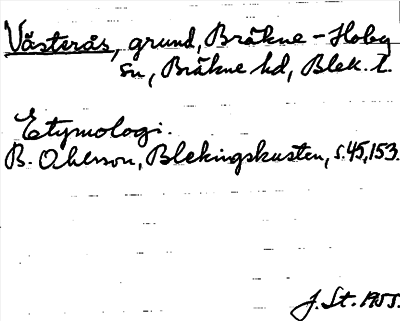 Västerås, grund, Bräkne-Hoby
sn, Bräkne hd, Blek. l.
Etymologi.
B. Ohlsson, Blekingskusten, s. 45, 153.
J. St. 1955.